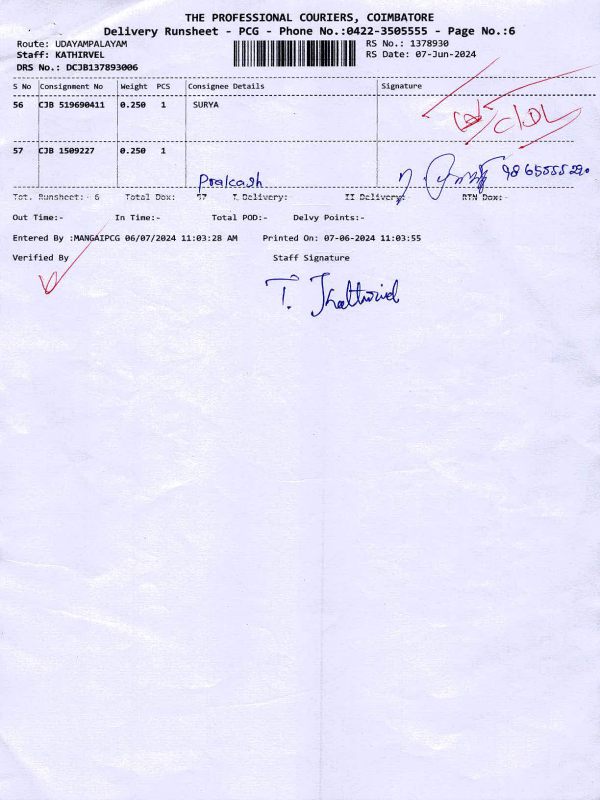 THE PROFESSIONAL COURIERS, COIMBATORE
Delivery Runsheet - PCG - Phone No.:0422-3505555 - Page No.:6
Route: UDAYAMPALAYAM RS No.: 1378930
Staff: KATHIRVEL RS Date: 07-Jun-2024
DRS No.: DCJB137893006
S No Consignment No Weight PCS Consignee Details Signature
56 CJB 519690411 0.250 1 SURYA
57 CJB 1509227 0.250 1
Prakash
Tot. Runsheet:- 6 Total Dox: 57 I Delivery: II Delivery: RTN Dox:-
Out Time:- In Time:- Total POD:- Delvy Points:-
Entered By :MANGAIPCG 06/07/2024 11:03:28 AM Printed On: 07-06-2024 11:03:55
Verified By Staff Signature